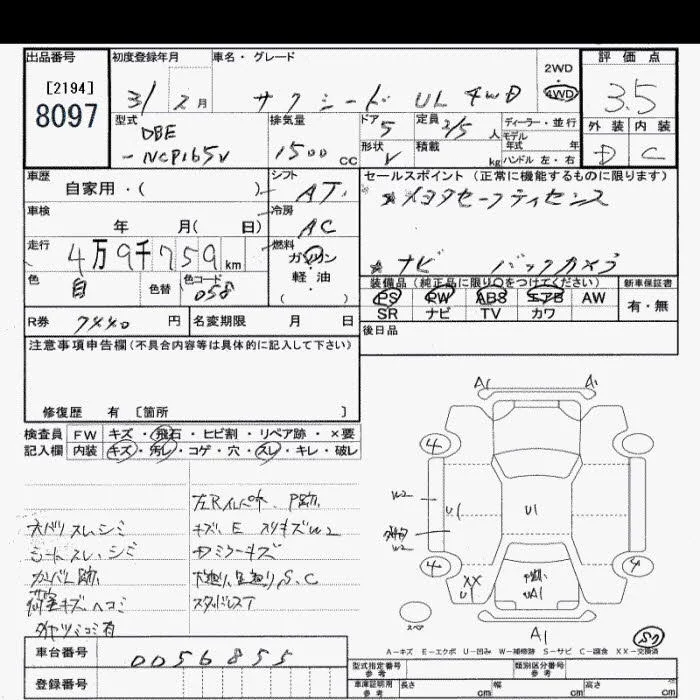 出品番号
[2194]
8097
初度登録年月
31 / 2 月
車名・グレード
サクシード UL 4WD
2WD
4WD
評価点
3.5
外装 内装
D C
型式
DBE
-NCP165V
排気量
1500 cc
ドア 5
形状 V
定員 2/5 人
積載 kg
ディーラー・並行
モデル
年式 年
ハンドル 左・右
車歴
自家用・( )
シフト
AT
車検
年 月( 日)
冷房
AC
走行
4万9千759km
燃料
ガソリン
軽・油
( )
色
白
色替
色コード
058
セールスポイント(正常に機能するものに限ります)
トヨタセーフティセンス
ナビ バックカメラ
装備品(純正品に限り○をつけてください)
PS PW ABS エアB AW
SR ナビ TV カワ
新車保証書
有・無
R券 7440 円
名変期限 月 日
後日品
注意事項申告欄(不具合内容等は具体的に記入して下さい)
修復歴 有 〔箇所 〕
検査員 FW キズ・飛石・ヒビ割・リペア跡・×要
記入欄 内装 キズ・汚レ・コゲ・穴・スレ・キレ・破レ
シートスレ、シミ
荷室キズ、ヘコミ
キズ、E スリキズW2
下廻り、足廻りS、C
スタッドレスT
A1 A1
4
W2
U1
U1
W2
4 4
XX
U1
UA1
A1
スペア
S2
A-キズ E-エクボ U-凹み W-補修跡 S-サビ C-腐食 XX-交換済
車台番号
0056855
登録番号
型式指定番号
参考
類別区分番号
参考
車庫証明用
参考
長さ cm 幅 cm 高さ cm